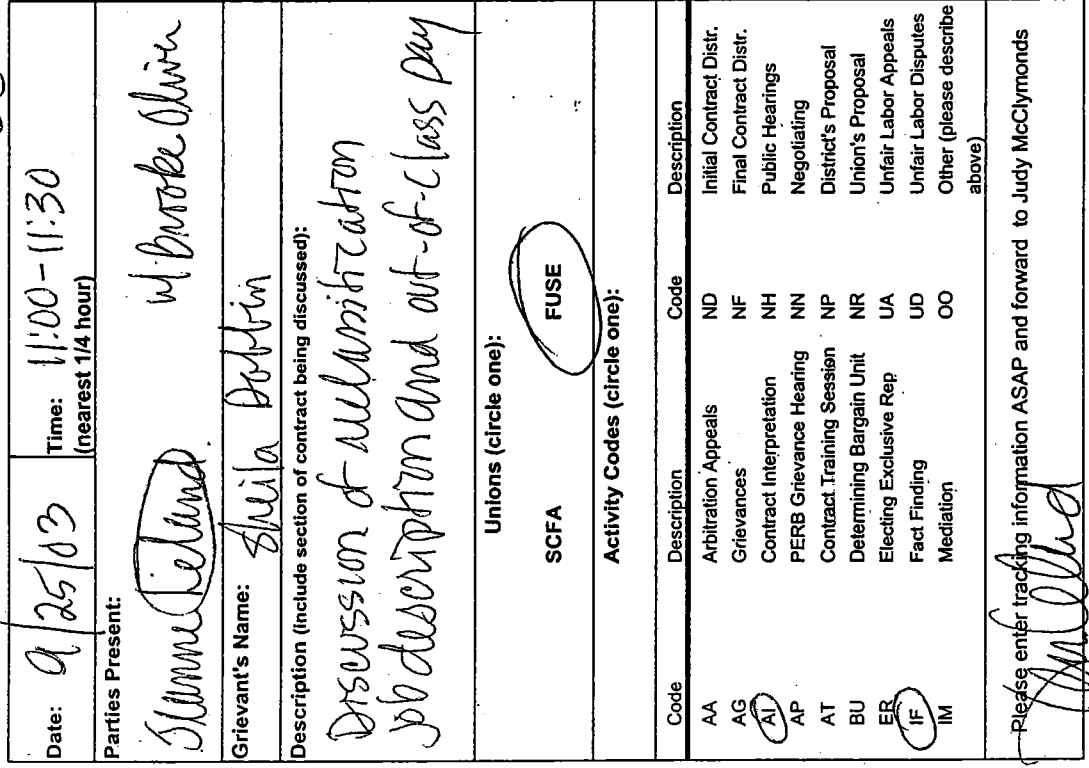 Date: 9/25/03 Time: 11:00-11:30
(nearest 1/4 hour)
Parties Present:
Fieland w/ Brooke Oliver
Grievant's Name: Sheila Dobbin
Description (include section of contract being discussed):
Discussion of
job description and out-of-class pay
Unions (circle one):
SCFA FUSE
Activity Codes (circle one):
Code Description Code Description
AA Arbitration Appeals ND Initial Contract Distr.
AG Grievances NF Final Contract Distr.
AI Contract Interpretation NH Public Hearings
AP PERB Grievance Hearing NN Negotiating
AT Contract Training Session NP District's Proposal
BU Determining Bargain Unit NR Union's Proposal
ER Electing Exclusive Rep UA Unfair Labor Appeals
IF Fact Finding UD Unfair Labor Disputes
IM Mediation OO Other (please describe
above)
Please enter tracking information ASAP and forward to Judy McClymonds